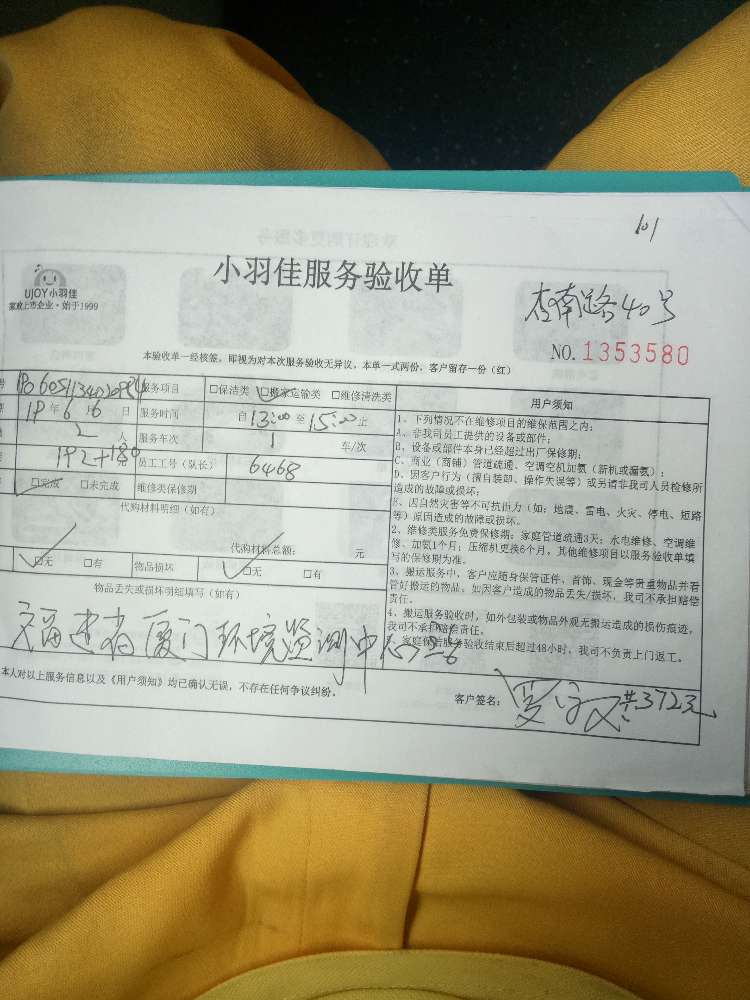 101
小羽佳服务验收单
UJOY小羽佳
家政上市企业·始于1999
杏南路40号
NO.1353580
本验收单一经核签，即视为对本次服务验收无异议，本单一式两份，客户留存一份（红）
服务项目 □保洁类 □搬家运输类 □维修清洗类
年6月6日 服务时间 自13:00至15:00止
2人 服务车次 1 车/次
192+180 员工工号（队长） 6468
□完成 □未完成 维修类保修期
代购材料明细（如有）
代购材料总额： 元
□无 □有 物品损坏 □无 □有
物品丢失或损坏明细填写（如有）
福建省厦门环境监测中心
本人对以上服务信息以及《用户须知》均已确认无误，不存在任何争议纠纷。
用户须知
1、下列情况不在维修项目的维保范围之内：
A、非我司员工提供的设备或部件；
B、设备或部件本身已经超过出厂保修期；
C、商业（商铺）管道疏通、空调空机加氨（新机或漏氨）；
D、因客户行为（擅自装卸、操作失误等）或另请非我司人员检修所
造成的故障或损坏；
E、因自然灾害等不可抗拒力（如：地震、雷电、火灾、停电、短路
等）原因造成的故障或损坏。
2、维修类服务免费保修期：家庭管道疏通3天；水电维修、空调维
修、加氨1个月；压缩机更换6个月，其他维修项目以服务验收单填
写的保修期为准。
3、搬运服务中，客户应随身保管证件、首饰、现金等贵重物品并看
管好搬运的物品，如因客户造成的物品丢失/损坏，我司不承担赔偿
责任。
4、搬运服务验收时，如外包装或物品外观无搬运造成的损伤痕迹，
我司不承担赔偿责任。
家庭保洁服务验收结束后超过48小时，我司不负责上门返工。
客户签名： 共372元